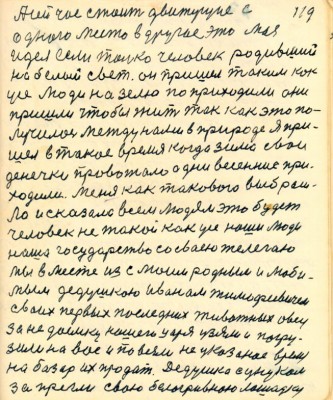 119
А ней час стоит движущие с
одного место в другое это мая
идея если только человек родивший
на белый свет. он пришел таким как
уже люди на землю по приходили они
пришли чтобы жить так как это по-
лучилось между нами в природе Я при-
шел в такое время когда зима свои
денечки провожала а дни весенние при-
ходили. Меня как такового выбраси-
ло и сказала всем людям это будет
человек не такой как уже наши люди
наша государство со сваею телегаю
мы вместе из с моим родным и люби-
мым дедушкою Иванам Тимофеевичем
своих первых последних животных овец
за не доимку нашего царя узяли и погру-
зили на вос и повезли не указаное время
на базар их продат. Дедушка с унуком
за прегли свою белогривною лошадку